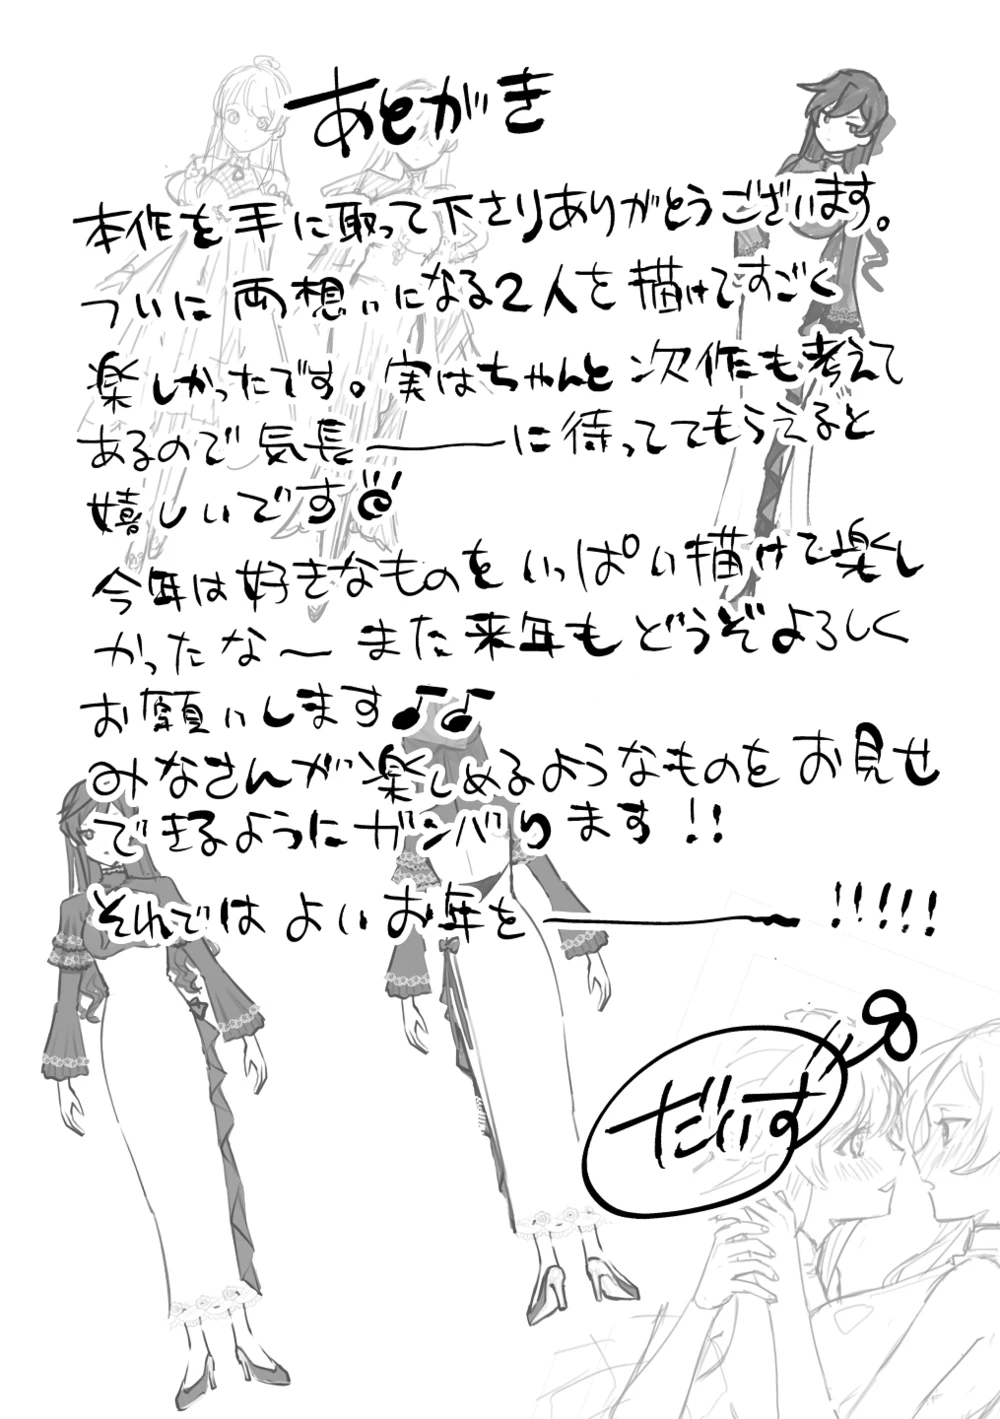 あとがき
本作を手に取って下さりありがとうございます。
ついに両想いになる2人を描けてすごく
楽しかったです。実はちゃんと次作も考えて
あるので気長――に待っててもらえると
嬉しいです
今年は好きなものをいっぱい描けて楽し
かったな〜また来年もどうぞよろしく
お願いします♪♪
みなさんが楽しめるようなものをお見せ
できるようにガンバります!!
それではよいお年を――!!!!!
だいす